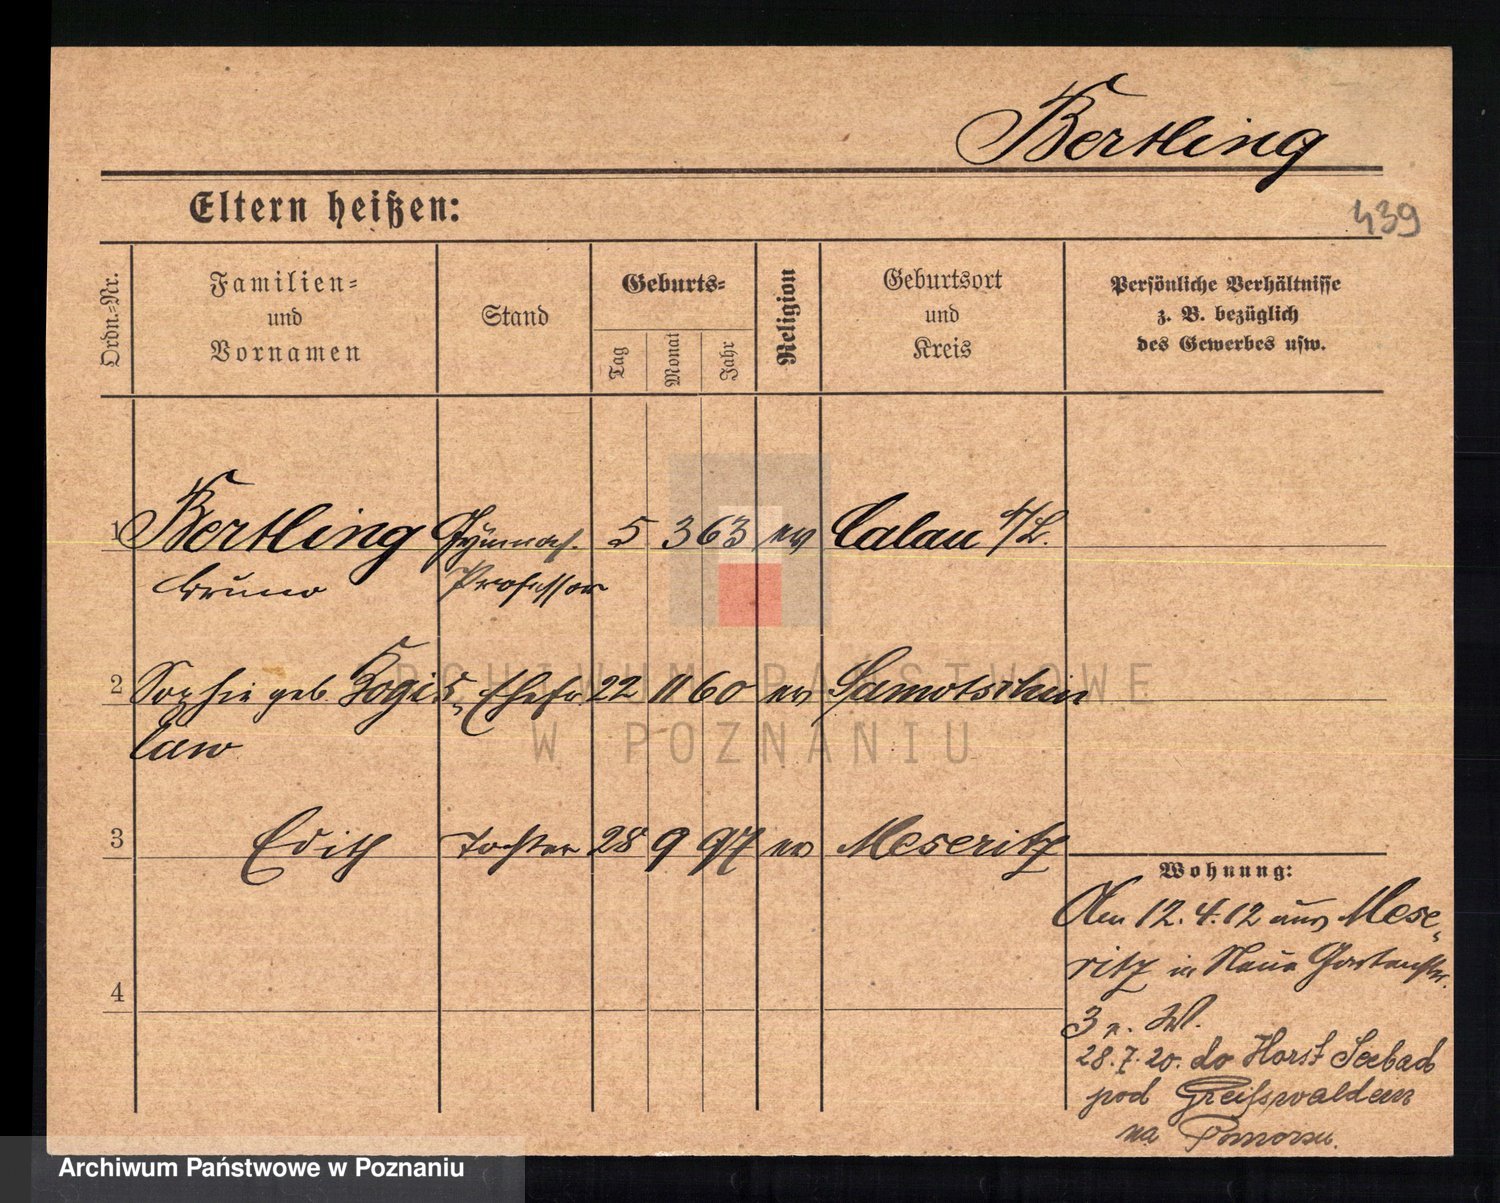 Bertling
Eltern heißen:
439
Ordn.-Nr.
Familien-
und
Vornamen
Stand
Geburts-
Tag
Monat
Jahr
Religion
Geburtsort
und
Kreis
Persönliche Verhältnisse
z. B. bezüglich
des Gewerbes usw.
1 Bertling Gymnas. 5 3 63 ev Calau N/L.
Bruno Professor
2 Sophie geb. Ehefr 22 11 60 ev Samotschin
3 Edith Tochter 28 9 97 ev Meseritz
Wohnung:
Am 12.4.12 aus Mese-
ritz in Neue Gartenstr.
3 W.
4
28.7.20. do Horst Seebad
pod Greifswaldem
na Pomorzu.
ARCHIWUM PAŃSTWOWE
W POZNANIU
Archiwum Państwowe w Poznaniu